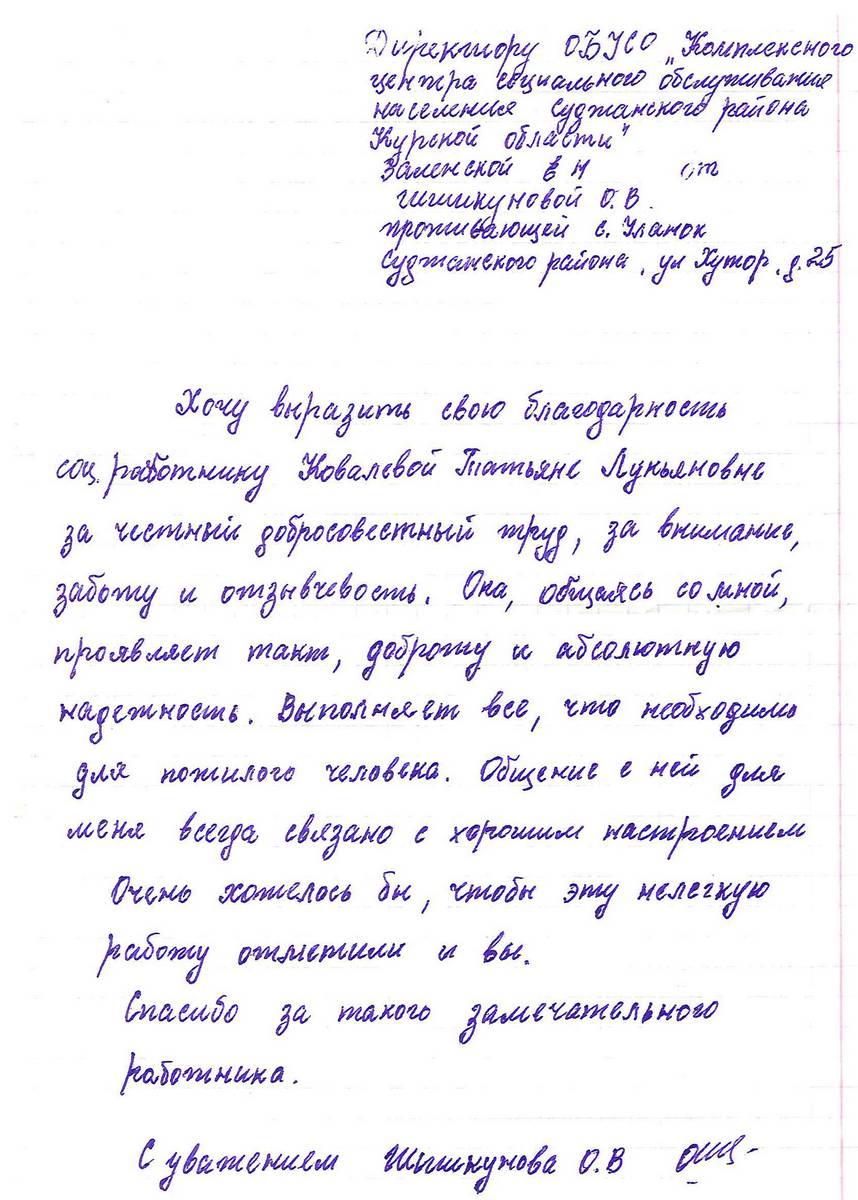 Директору ОБУСО „Комплексного
центра социального обслуживания
населения Суджанского района
Курской области"
Заленской Е Н от
Шишкуновой О.В.
проживающей с. Уланок
Суджанского района, ул Хутор, д.25
Хочу выразить свою благодарность
соц. работнику Ковалевой Татьяне Лукьяновне
за честный добросовестный труд, за внимание,
заботу и отзывчевость. Она, общаясь со мной,
проявляет такт, доброту и абсолютную
надежность. Выполняет все, что необходимо
для пожилого человека. Общение с ней для
меня всегда связано с хорошим настроением
Очень хотелось бы, чтобы эту нелегкую
работу отметили и вы.
Спасибо за такого замечательного
работника.
С уважением Шишкунова О.В